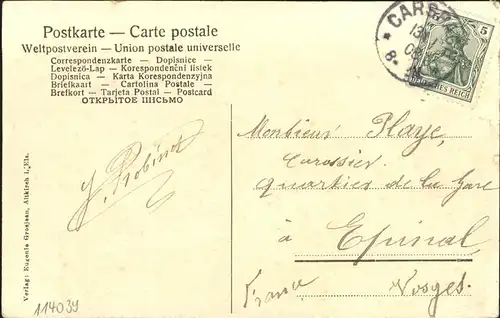 Postkarte — Carte postale
Weltpostverein — Union postale universelle
Correspondenzkarte — Dopisnice —
Levelező-Lap — Korespondenční lístek
Dopisnica — Karta Korespondencyjna
Briefkaart — Cartolina Postale —
Brefkort — Tarjeta Postal — Postcard
ОТКРЫТОЕ ПИСЬМО
5
DEUTSCHES REICH
Monsieur Playe,
Carossier
quartier de la Gare
à Epinal
Vosges.
France
J. Robinot
Verlag: Eugenie Grosjean, Altkirch i. Els.
114039